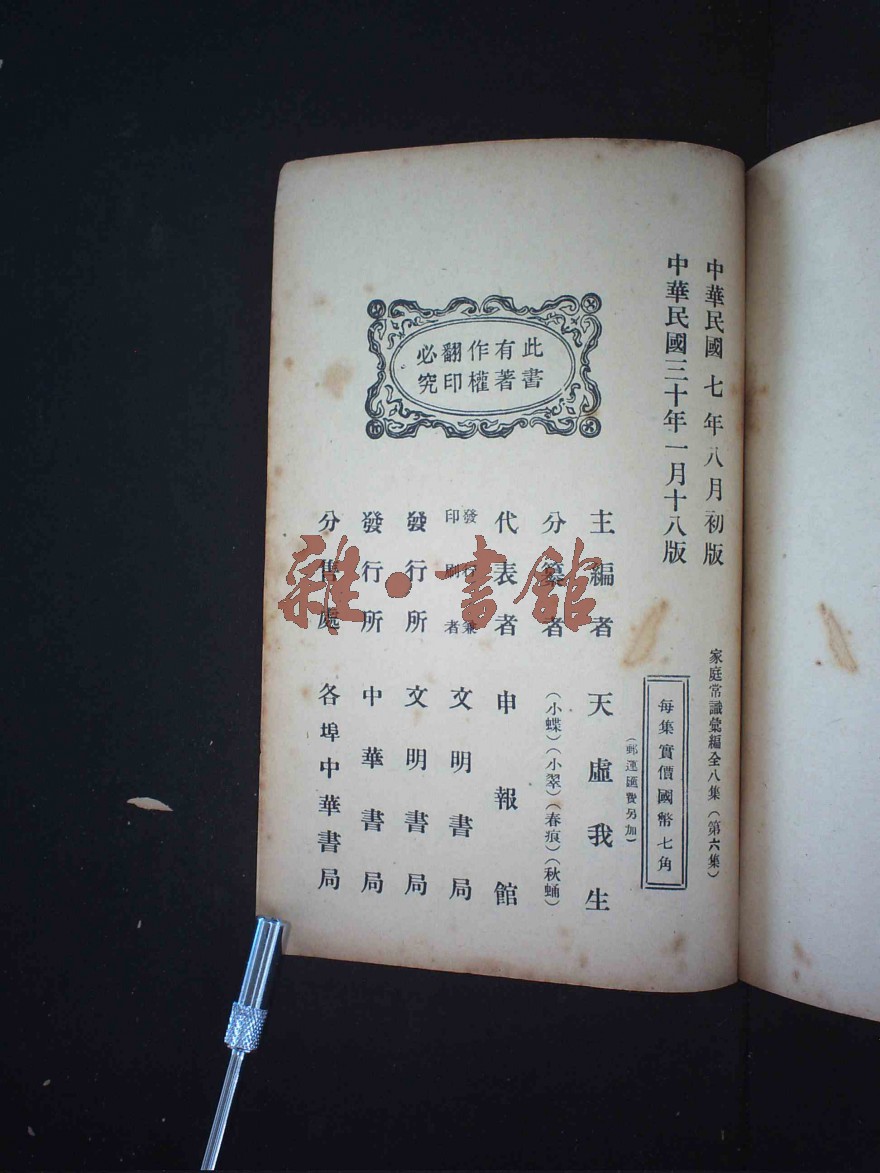 中華民國 七 年 八 月 初 版
中華民國三十年一月十八版
家庭常識彙編全八集(第六集)
每集實價國幣七角
(郵運匯費另加)
此書
有著
作權
翻印
必究
主編者 天虛我生
分纂者 (小蝶)(小翠)(春痕)(秋蛹)
代表者 申報館
發行兼
印刷者 文明書局
發行所 文明書局
發行所 中華書局
分售處 各埠中華書局
雜·書館